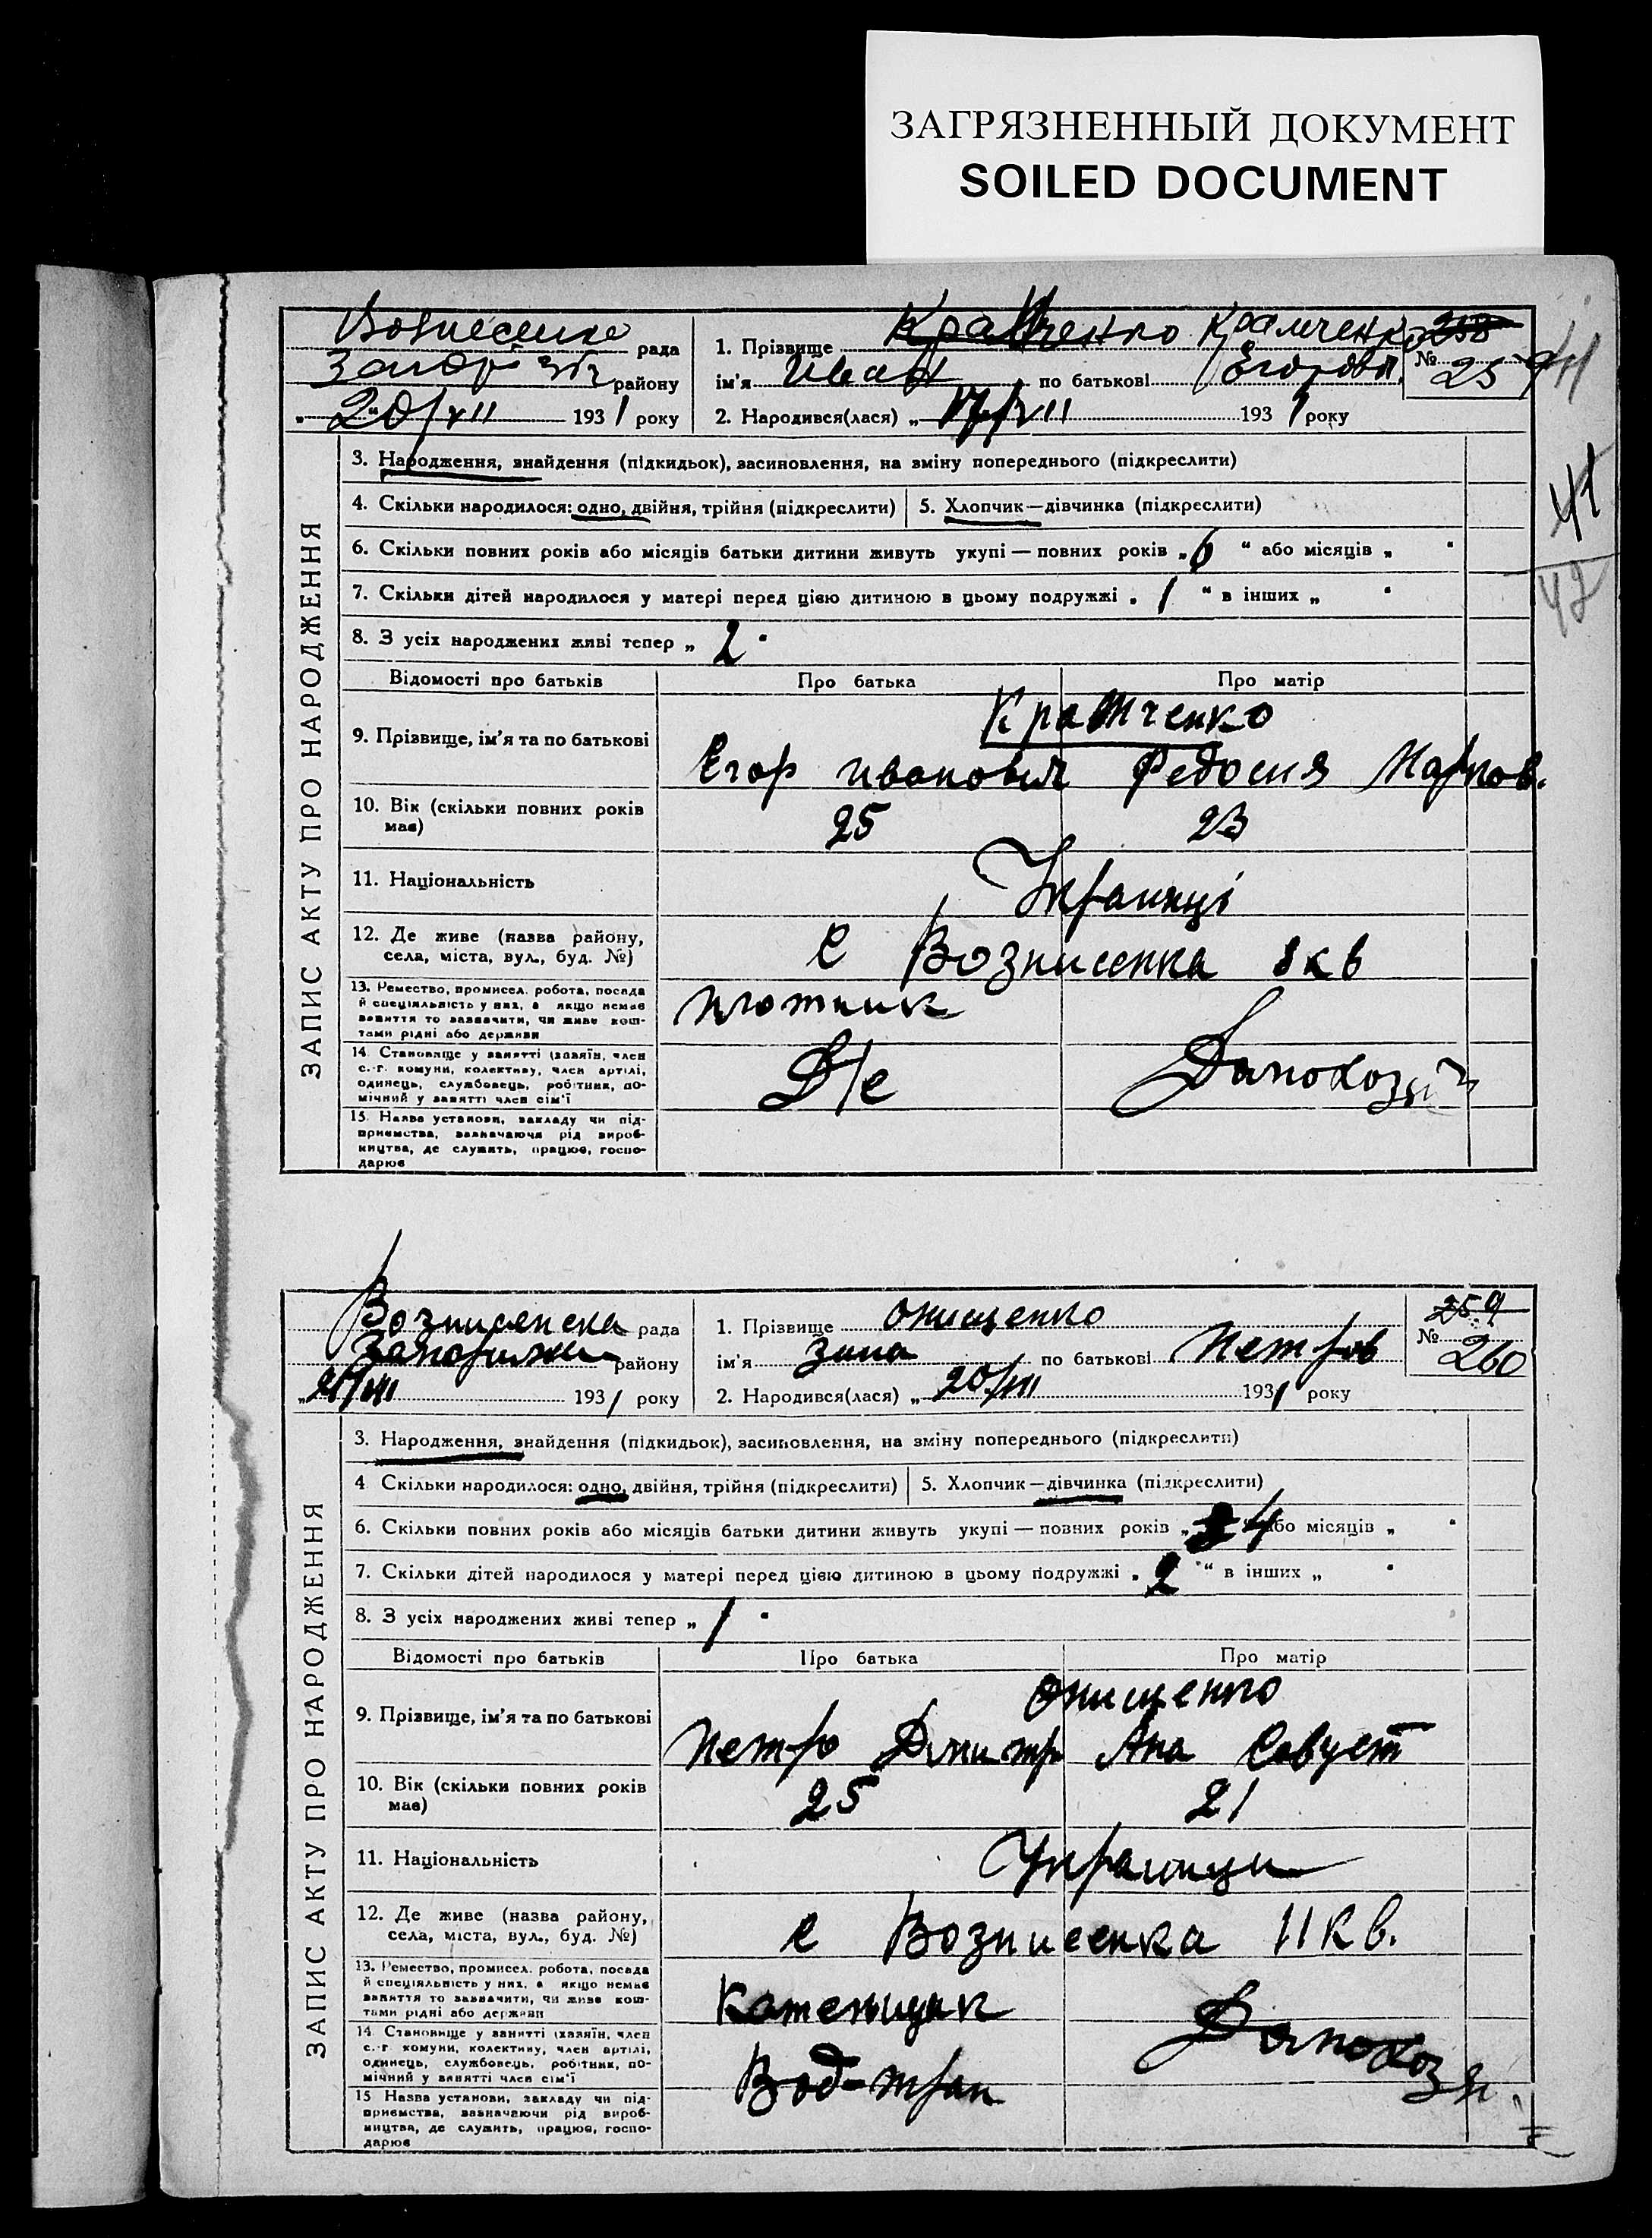 ЗАГРЯЗНЕННЫЙ ДОКУМЕНТ
SOILED DOCUMENT
рада
району
20/XII 1931 року
1. Прізвище Кравченко Крамченко
ім'я Иван по батькові Егоров.
№ 258 259
2. Народився(лася) „ 17/XII 1931 року
41
41
42
ЗАПИС АКТУ ПРО НАРОДЖЕННЯ
3. Народження, знайдення (підкидьок), засиновлення, на зміну попереднього (підкреслити)
4. Скільки народилося: одно, двійня, трійня (підкреслити) 5. Хлопчик—дівчинка (підкреслити)
6. Скільки повних років або місяців батьки дитини живуть укупі — повних років „ 6 “ або місяців „ “
7. Скільки дітей народилося у матері перед цією дитиною в цьому подружжі „ 1 “ в інших „ “
8. З усіх народжених живі тепер „ 2 “
Відомості про батьків Про батька Про матір
9. Прізвище, ім'я та по батькові
Крамченко
Егор Иванович Федосия Марков.
10. Вік (скільки повних років має) 25 23
11. Національність Українці
12. Де живе (назва району, села, міста, вул., буд. №)
с Вознисенка 8 кв
13. Ремество, промисел. робота, посада й спеціяльність у них, а якщо немає заняття то зазначити, чи живе коштами рідні або держави
плотник
14. Становище у занятті (хазяїн, член с.-г. комуни, колективу, член артілі, одинець, службовець, робітник, помічний у занятті член сім'ї
Домохозяй
15. Назва установи, закладу чи підприємства, зазначаючи рід виробництва, де служить, працює, господарює
Вознисенска рада
району
21/XII 1931 року
1. Прізвище Онищенко
ім'я Зина по батькові Петров
№ 259 260
2. Народився(лася) „ 20/XII 1931 року
ЗАПИС АКТУ ПРО НАРОДЖЕННЯ
3. Народження, знайдення (підкидьок), засиновлення, на зміну попереднього (підкреслити)
4 Скільки народилося: одно, двійня, трійня (підкреслити) 5. Хлопчик—дівчинка (підкреслити)
6. Скільки повних років або місяців батьки дитини живуть укупі — повних років „ 4 “ або місяців „ “
7. Скільки дітей народилося у матері перед цією дитиною в цьому подружжі „ 2 “ в інших „ “
8. З усіх народжених живі тепер „ 1 “
Відомості про батьків Про батька Про матір
9. Прізвище, ім'я та по батькові
Онищенко
Петро Дмитр Ана Савуст
10. Вік (скільки повних років має) 25 21
11. Національність Украинци
12. Де живе (назва району, села, міста, вул., буд. №)
с Вознисенка 11 кв.
13. Ремество, промисел. робота, посада й спеціяльність у них, а якщо немає заняття то зазначити, чи живе коштами рідні або держави
Каменщик
14. Становище у занятті (хазяїн, член с.-г. комуни, колективу, член артілі, одинець, службовець, робітник, помічний у занятті член сім'ї
Домохозя.
15 Назва установи, закладу чи підприємства, зазначаючи рід виробництва, де служить, працює, господарює
Вод-тран